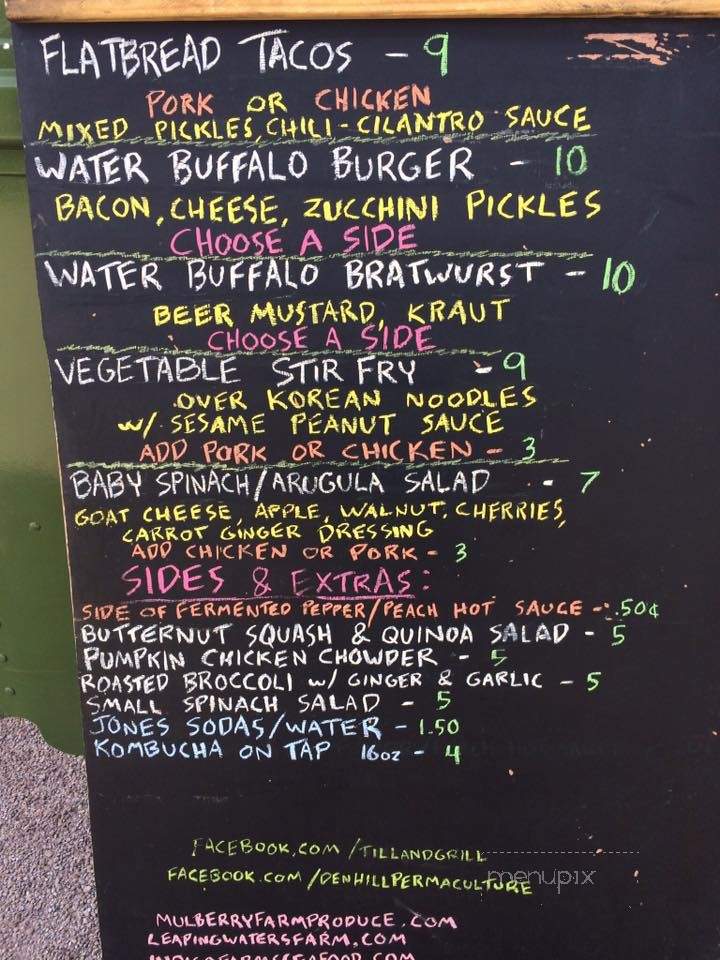 FLATBREAD TACOS - 9
PORK OR CHICKEN
MIXED PICKLES, CHILI-CILANTRO SAUCE
WATER BUFFALO BURGER - 10
BACON, CHEESE, ZUCCHINI PICKLES
CHOOSE A SIDE
WATER BUFFALO BRATWURST - 10
BEER MUSTARD, KRAUT
CHOOSE A SIDE
VEGETABLE STIR FRY - 9
OVER KOREAN NOODLES
w/ SESAME PEANUT SAUCE
ADD PORK OR CHICKEN - 3
BABY SPINACH/ARUGULA SALAD - 7
GOAT CHEESE, APPLE, WALNUT, CHERRIES,
CARROT GINGER DRESSING
ADD CHICKEN OR PORK - 3
SIDES & EXTRAS:
SIDE OF FERMENTED PEPPER/PEACH HOT SAUCE - .50¢
BUTTERNUT SQUASH & QUINOA SALAD - 5
PUMPKIN CHICKEN CHOWDER - 5
ROASTED BROCCOLI w/ GINGER & GARLIC - 5
SMALL SPINACH SALAD - 5
JONES SODAS/WATER - 1.50
KOMBUCHA ON TAP 16oz - 4
FACEBOOK.COM/TILLANDGRILL
FACEBOOK.COM/DENHILLPERMACULTURE
menupix
MULBERRYFARMPRODUCE.COM
LEAPINGWATERSFARM.COM